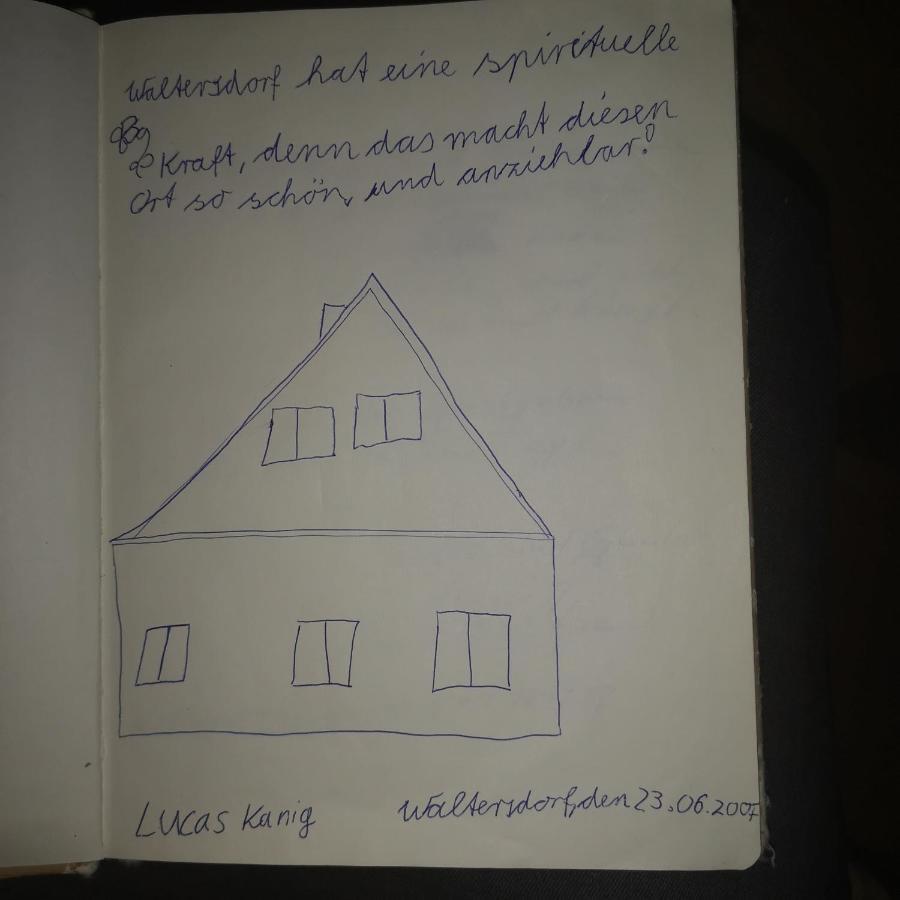 Waltersdorf hat eine spirituelle
Kraft, denn das macht diesen
Ort so schön, und anziehbar!
Lucas Kanig
Waltersdorf, den 23.06.2007